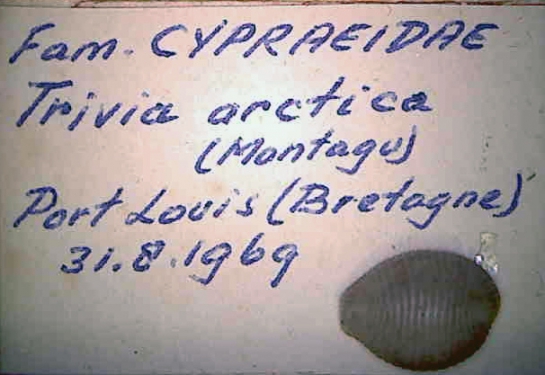 Fam. CYPRAEIDAE
Trivia arctica
(Montagu)
Port Louis (Bretagne)
31.8.1969